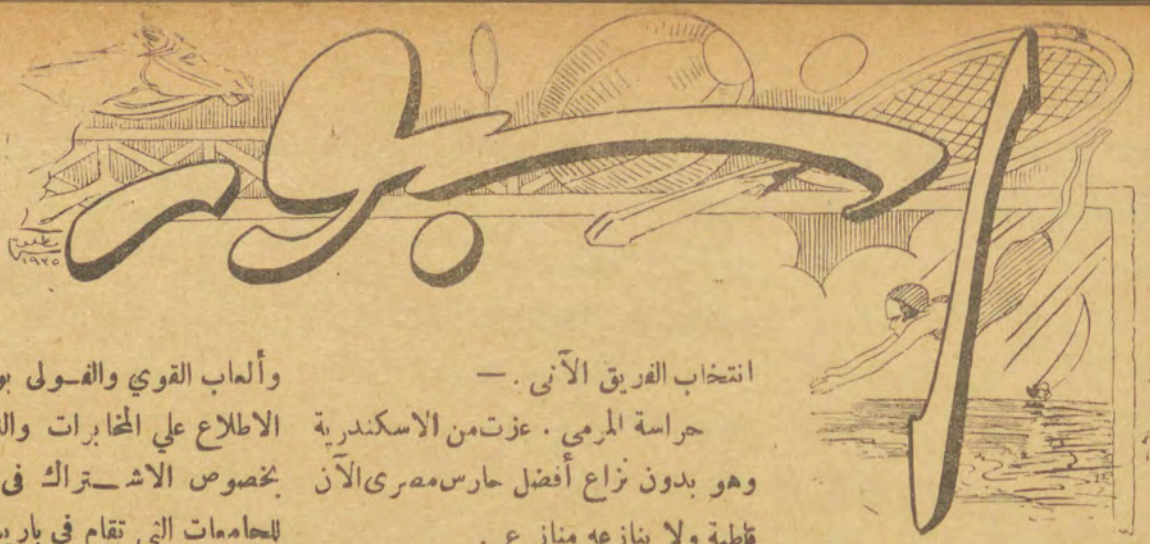 اسبور
١٩٢٥
انتخاب الفريق الآتى . —
حراسة المرمى . عزت من الاسكندرية
وهو بدون نزاع أفضل حارس مصرى الآن
قاطبة ولا ينازعه منازع
وألعاب القوي والفولى
الاطلاع علي المخابرات
بخصوص الاشتراك فى
للجامعات التى تقام في